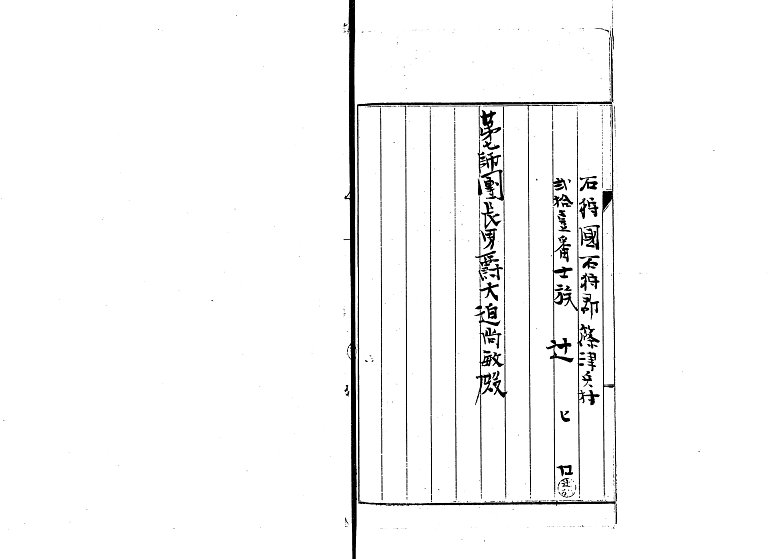 石狩國石狩郡篠津兵村
弐拾壹番士族 辻 ヒロ
第七師團長男爵大迫尚敏殿